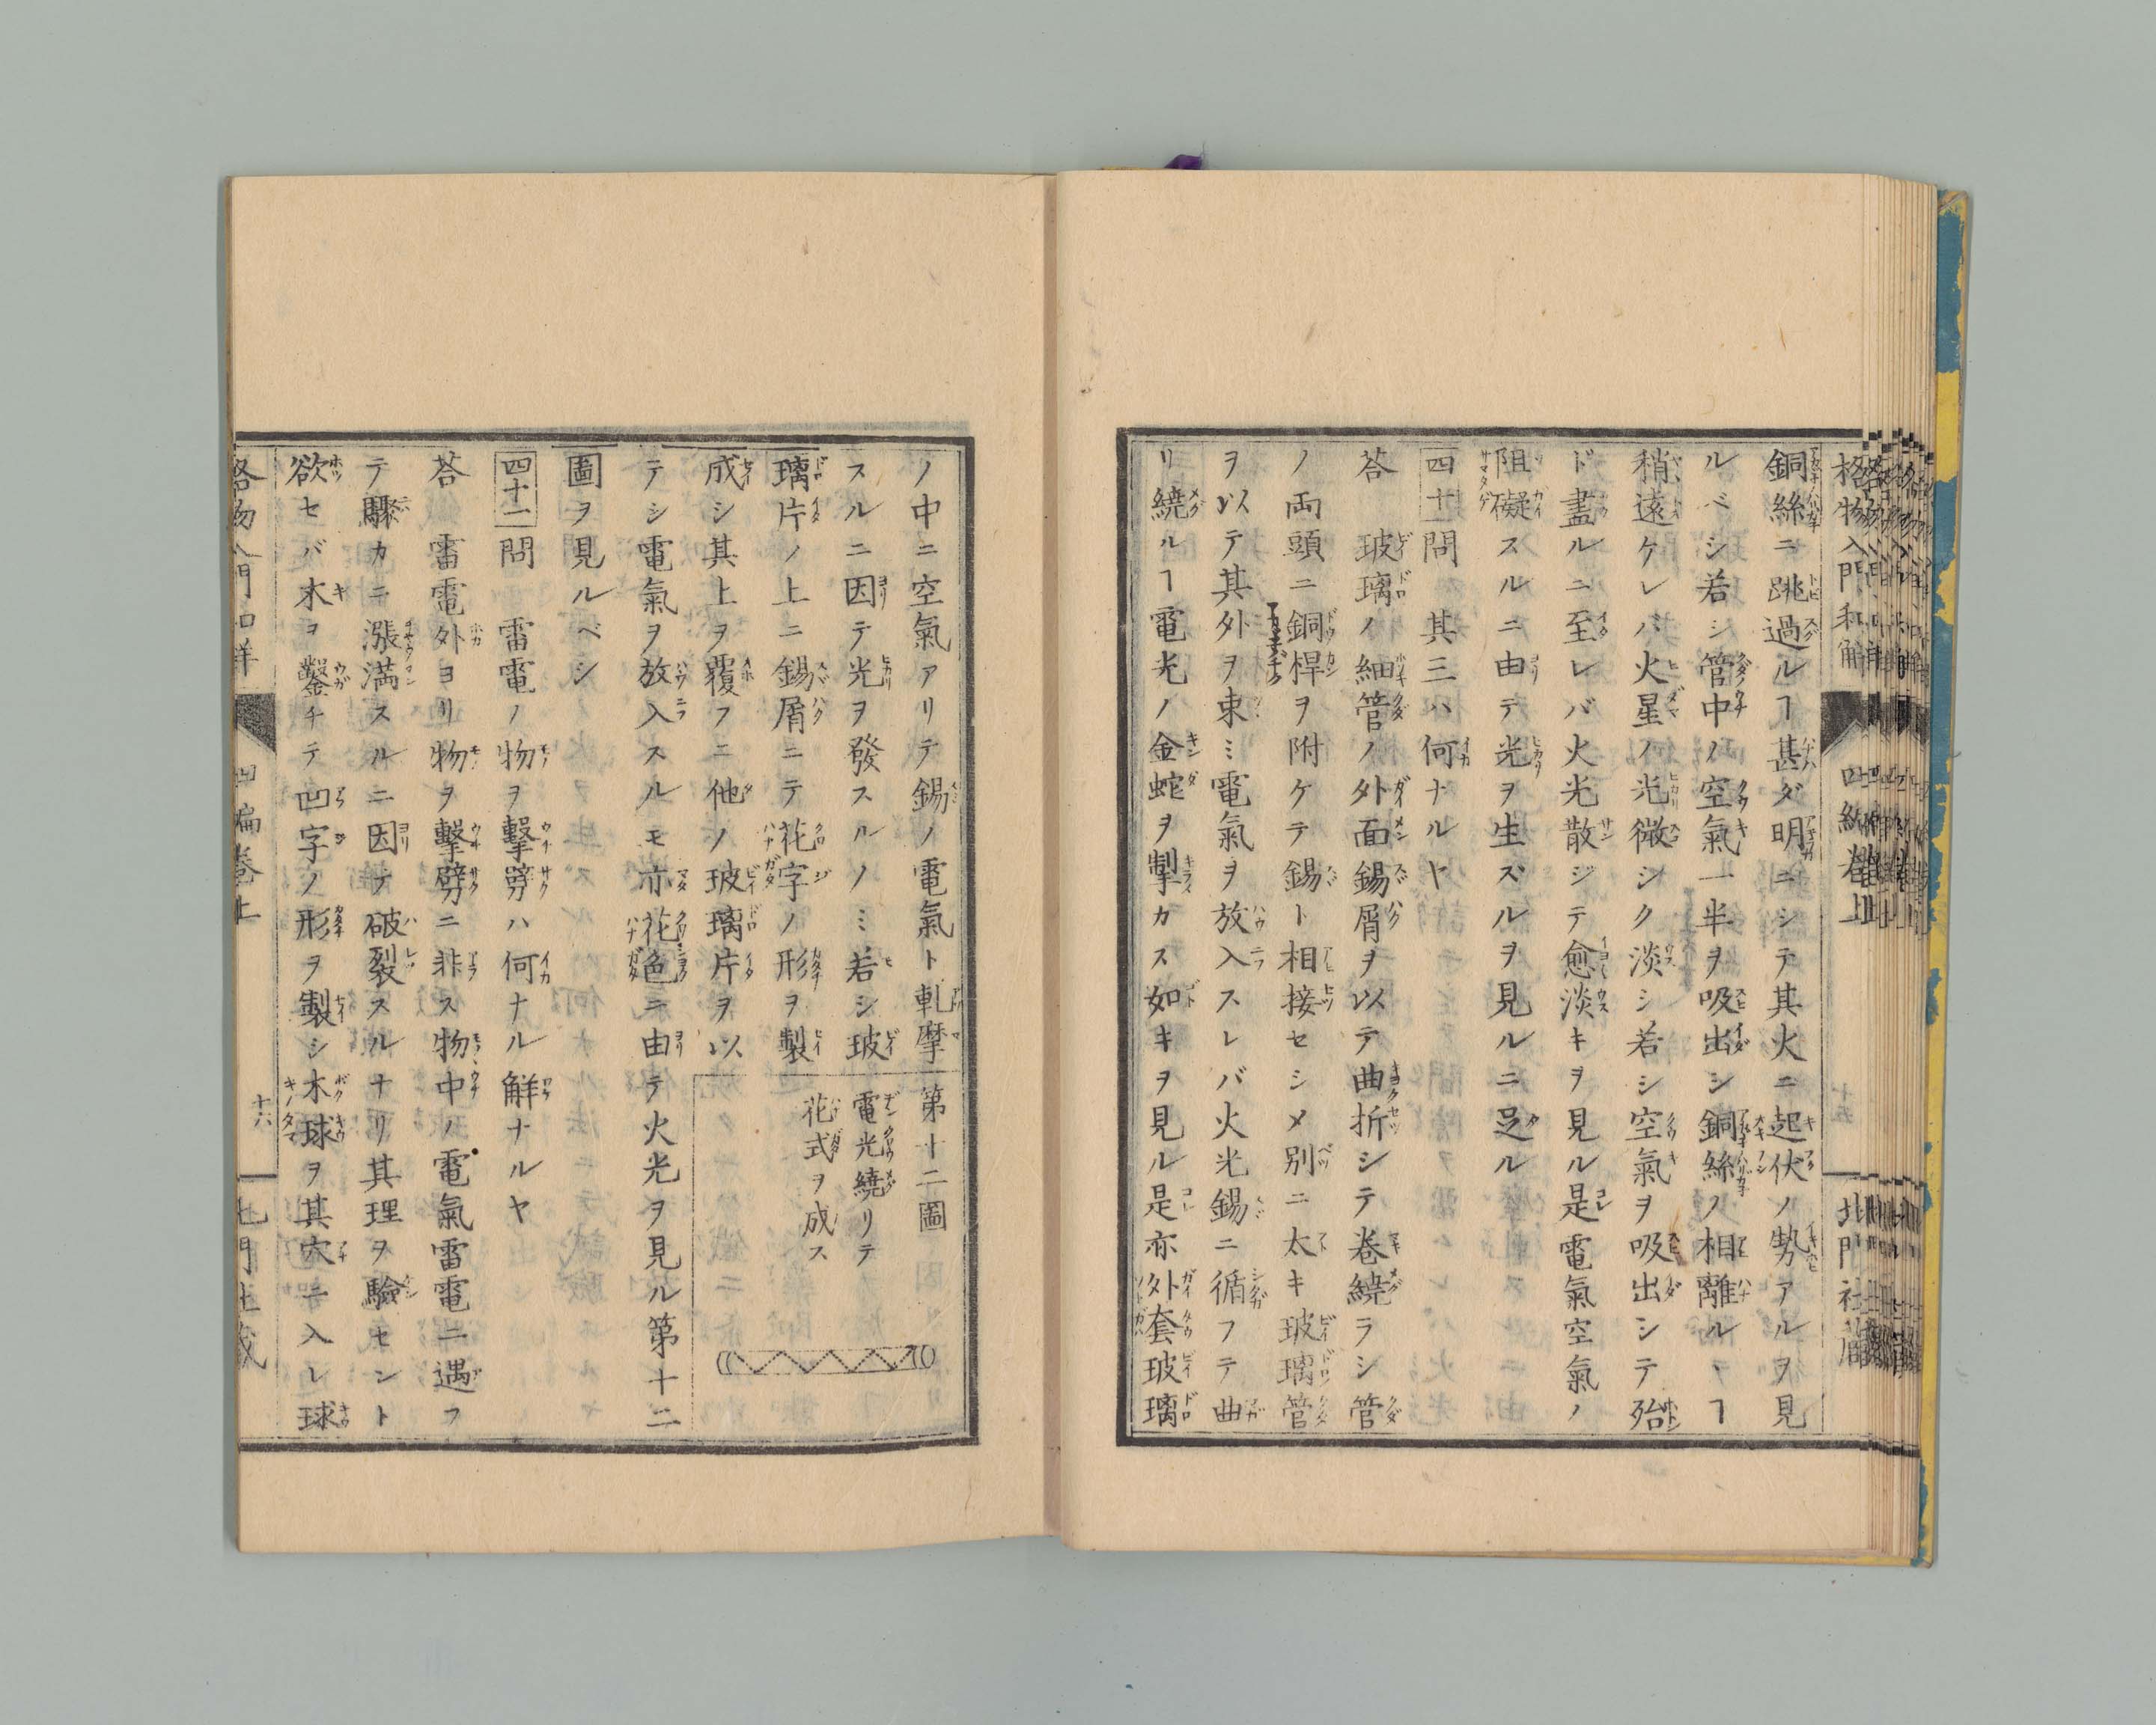 格物入門和解
四編巻上
十五
北門社蔵
銅絲ニ跳過ルヿ甚ダ明ニシテ其火ニ起伏ノ勢アルヲ見
ルベシ若シ管中ノ空氣一半ヲ吸出シ銅絲ノ相離ルヿ
稍遠ケレバ火星ノ光微シク淡シ若シ空氣ヲ吸出シテ殆
ド盡ルニ至レバ火光散ジテ愈淡キヲ見ル是電氣空氣ノ
阻礙スルニ由テ光ヲ生ズルヲ見ルニ足ル
四十問 其三ハ何ナルヤ
荅 玻璃ノ細管ノ外面錫屑ヲ以テ曲折シテ巻繞ラシ管
ノ両頭ニ銅桿ヲ附ケテ錫ト相接セシメ別ニ太キ玻璃管
ヲ以テ其外ヲ束ミ電氣ヲ放入スレバ火光錫ニ循フテ曲
リ繞ルヿ電光ノ金蛇ヲ掣カス如キヲ見ル是亦外套玻璃
ノ中ニ空氣アリテ錫ノ電氣ト軋摩
スルニ因テ光ヲ發スルノミ若シ玻
璃片ノ上ニ錫屑ニテ花字ノ形ヲ製
成シ其上ヲ覆フニ他ノ玻璃片ヲ以
テシ電氣ヲ放入スルモ亦花色ニ由テ火光ヲ見ル第十二
圖ヲ見ルベシ
第十二圖
電光繞リテ
花式ヲ成ス
四十一問 雷電ノ物ヲ擊劈ハ何ナル解ナルヤ
荅 雷電外ヨリ物ヲ擊劈ニ非ス物中ノ電氣雷電ニ遇フ
テ驟カニ漲満スルニ因テ破裂スルナリ其理ヲ驗セント
欲セバ木ヲ鑿チテ凹字ノ形ヲ製シ木球ヲ其穴ニ入レ球
格物入門和解
四編巻上
十六
北門社蔵